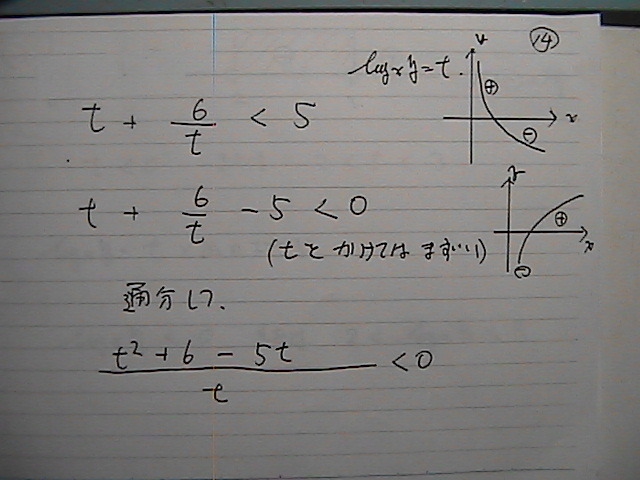 ⑭
log_x y = t.
t + 6/t < 5
t + 6/t - 5 < 0
(tとかけてはまずい)
通分して.
(t² + 6 - 5t)/t < 0
y
x
⊕
⊖
y
x
⊕
⊖